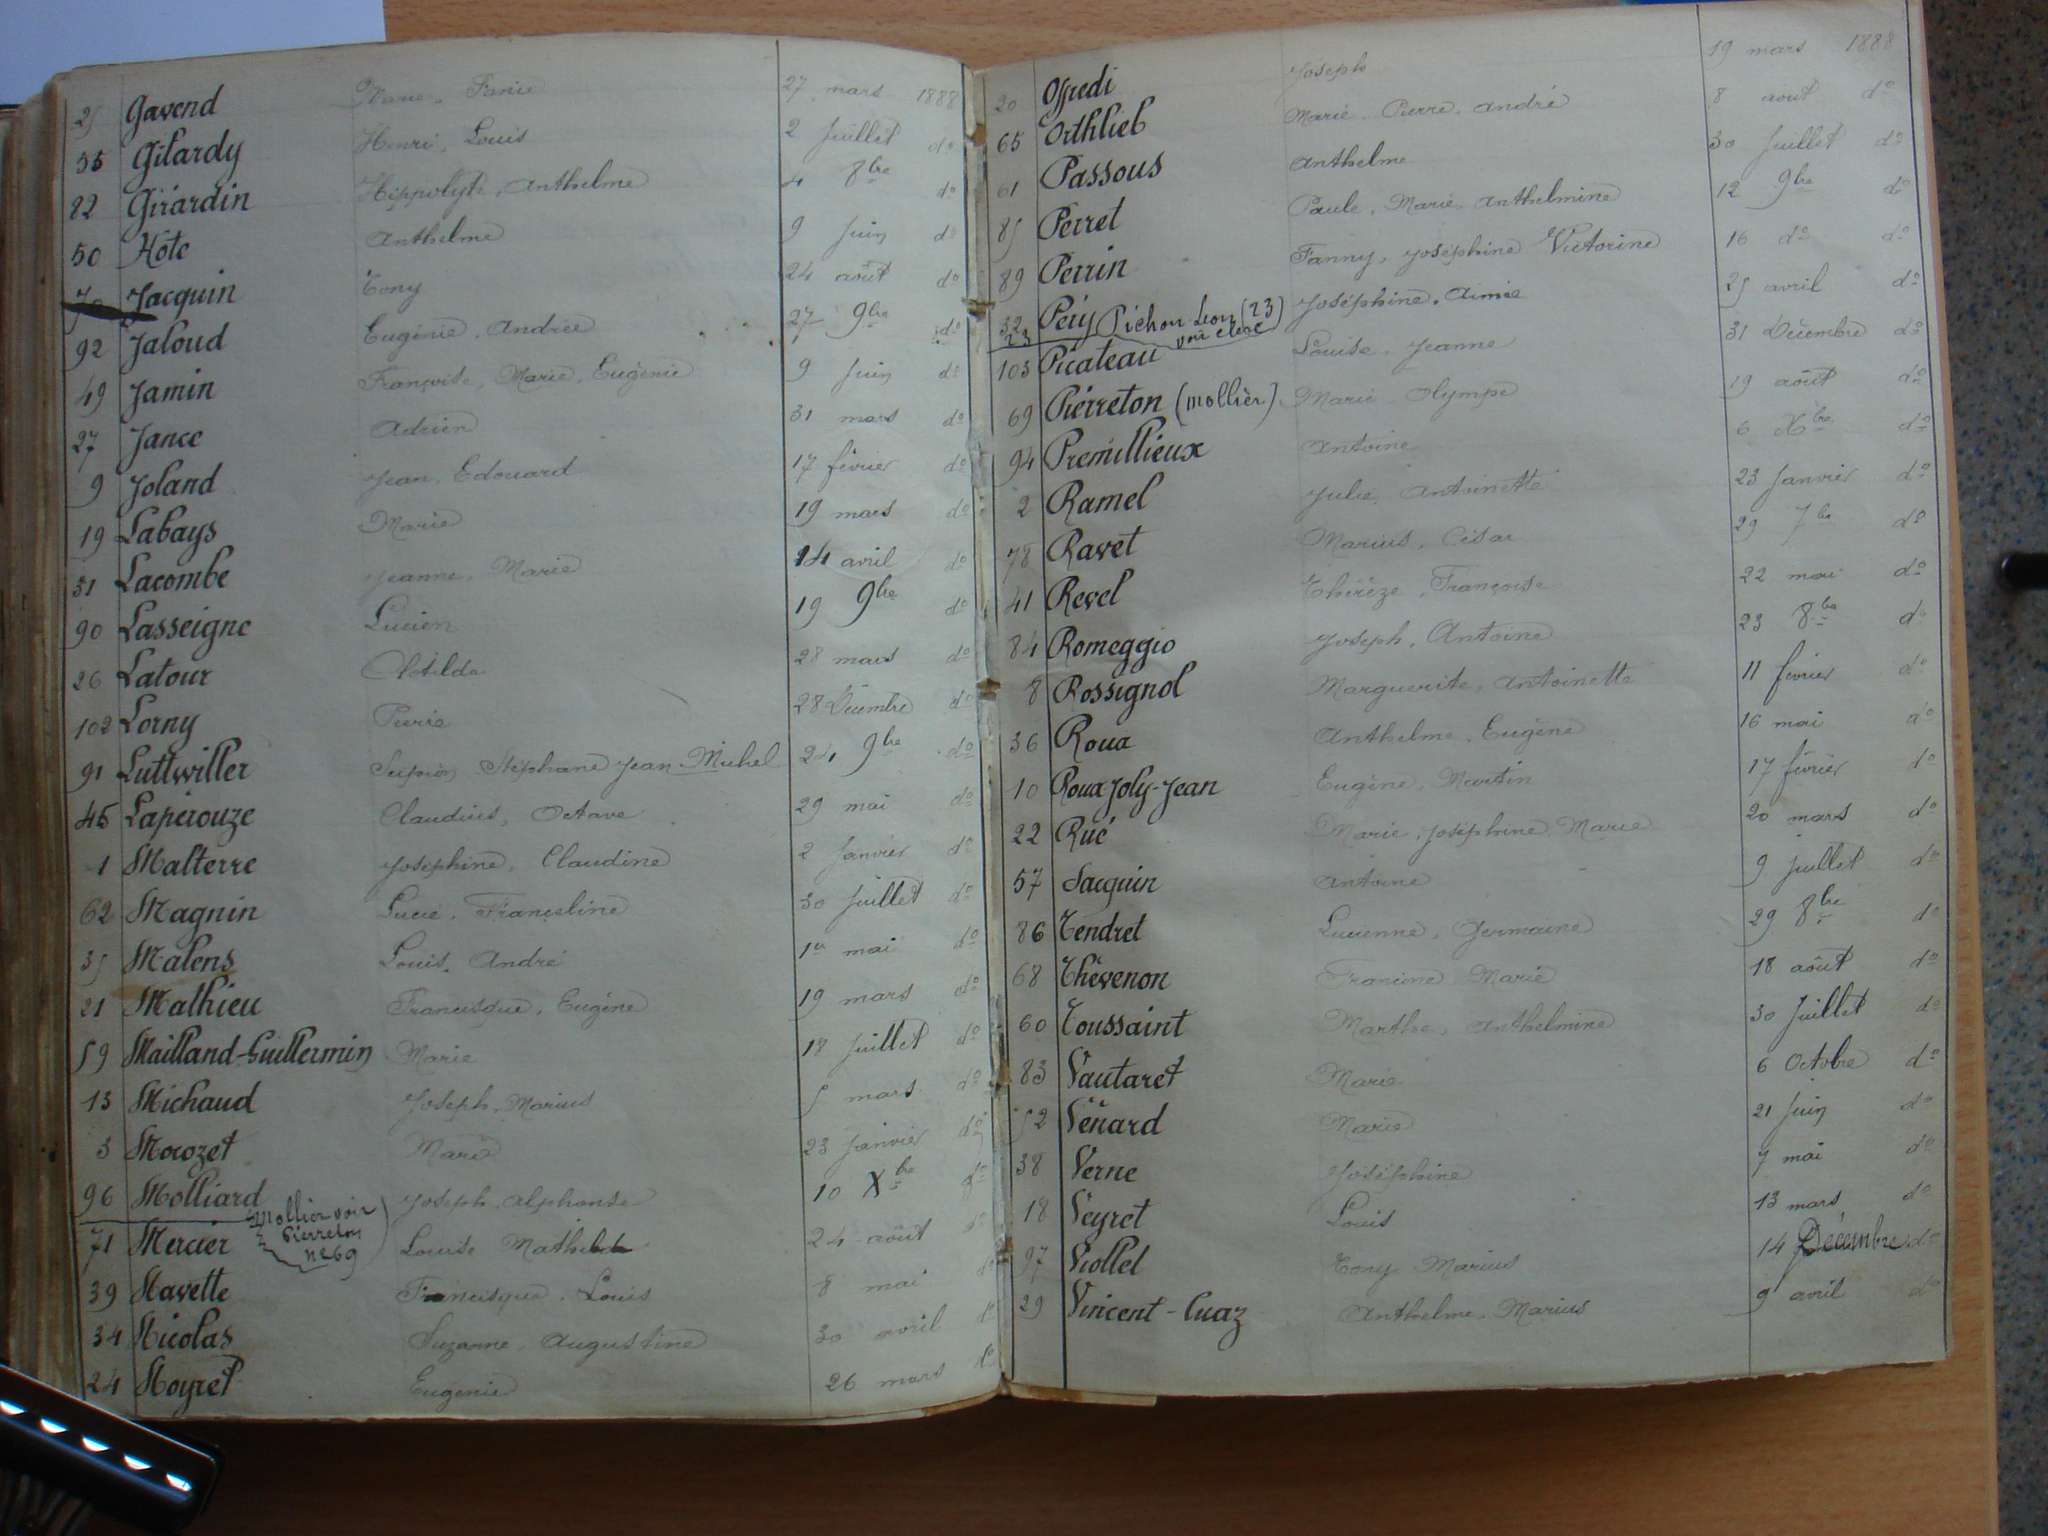 25 Gavend Marie, Fanie 27 mars 1888
55 Gilardy Henri, Louis 2 Juillet do
82 Girardin Hippolyte, Anthelme 4 8bre do
50 Hôte Anthelme 9 Juin do
70 Jacquin Tony 24 août do
92 Jaloud Eugénie, Andrée 27 9bre do
49 Jamin Françoise, Marie, Eugénie 9 Juin do
27 Jance Adrien 31 mars do
9 Joland Jean, Edouard 17 février do
19 Labays Marie 19 mars do
31 Lacombe Jeanne, Marie 14 avril do
90 Lasseigne Lucien 19 9bre do
26 Latour Clotilde 28 mars do
102 Lorny Pierre 28 Décembre do
91 Luttwiller Stéphane Jean Michel 24 9bre do
45 Lapérouze Claudius, Octave 29 mai do
1 Malterre Joséphine, Claudine 2 Janvier do
62 Magnin Lucie, Franceline 30 Juillet do
35 Malens Louis, André 1er mai do
21 Mathieu Francisque, Eugène 19 mars do
59 Mailland-Guillermin Marie 18 Juillet do
13 Michaud Joseph, Marius 5 mars do
3 Morozet Marie 23 Janvier do
96 Molliard Joseph, Alphonse 10 Xbre do
Mollier voir
Pierreton
No 69
71 Mercier Louise Mathilde 24 août do
39 Navette Francisque, Louis 8 mai do
34 Nicolas Suzanne, Augustine 30 avril do
24 Noyret Eugénie 26 mars do
20 Offredi Joseph 19 mars 1888
65 Orthlieb Marie, Pierre, André 8 août do
61 Passous Anthelme 30 Juillet do
85 Perret Paule, Marie, Anthelmine 12 9bre do
89 Perrin Fanny, Joséphine Victorine 16 do do
32 Pery Joséphine, Aimée 25 avril do
23 Pichon Léon (23)
voir
103 Picateau Louise, Jeanne 31 Décembre do
69 Pierreton (Mollier) Marie Olympe 19 août do
94 Premillieux Antoine 6 Xbre do
2 Ramel Julie, Antoinette 23 Janvier do
78 Ravet Marius, César 29 7bre do
41 Revel Thérèze, Françoise 22 mai do
84 Romeggio Joseph, Antoine 23 8bre do
8 Rossignol Marguerite, Antoinette 11 février do
36 Roux Anthelme, Eugène 16 mai do
10 Roux Joly-Jean Eugène, Martin 17 février do
22 Rué Marie, Joséphine, Marie 20 mars do
57 Sacquin Antoine 9 Juillet do
86 Tendret Lucienne, Germaine 29 8bre do
68 Thévenon Francine Marie 18 août do
60 Toussaint Marthe, Anthelmine 30 Juillet do
83 Vautaret Marie 6 Octobre do
52 Vénard Marie 21 Juin do
38 Verne Joséphine 7 mai do
18 Veyret Louis 13 mars do
97 Viollet Tony Marius 14 Décembre do
29 Vincent-Cuaz Anthelme, Marius 9 avril do